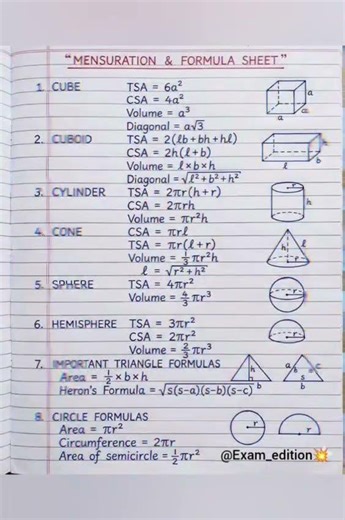 "MENSURATION & FORMULA SHEET"
1. CUBE TSA = 6a²
CSA = 4a²
Volume = a³
Diagonal = a√3
a
a
a
2. CUBOID TSA = 2(lb+bh+hl)
CSA = 2h(l+b)
Volume = l×b×h
Diagonal = √l²+b²+h²
h
b
l
3. CYLINDER TSA = 2πr(h+r)
CSA = 2πrh
Volume = πr²h
r
h
4. CONE CSA = πrl
TSA = πr(l+r)
Volume = 1/3 πr²h
l = √r²+h²
h
l
r
5. SPHERE TSA = 4πr²
Volume = 4/3 πr³
r
6. HEMISPHERE TSA = 3πr²
CSA = 2πr²
Volume = 2/3 πr³
r
7. IMPORTANT TRIANGLE FORMULAS
Area = 1/2 × b × h
Heron's Formula = √s(s-a)(s-b)(s-c)
h
b
a
c
s
b
8. CIRCLE FORMULAS
Area = πr²
Circumference = 2πr
Area of semicircle = 1/2 πr²
r
r
@Exam_edition💥